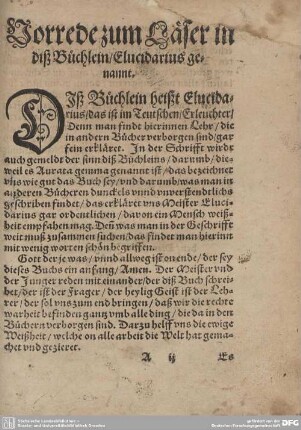 Vorrede zum Läser in
diß Büchlein/Elucidarius ge-
nannt.
DIß Büchlein heißt Elucida-
rius/das ist im Teutschen/Erleuchter/
Denn man findt hierinnen Lehr/die
in andern Bücher verborgen sind/gar
fein erkläret. In der Schrifft wirdt
auch gemeldt der sinn diß Büchleins/darumb/die-
weil es Aurata gemma genannt ist/das bezeichnet
vns wie gut das Buch sey/vnd darumb/was man in
anderen Bücheren dunckels vnnd vnverstendtlichs
geschriben findet/das erkläret vns Meister Eluci-
darius gar ordentlichen/davon ein Mensch weiß-
heit empfahen mag. Deñ was man in der Geschrifft
weit muß zusammen suchen/das findet man hierinn
mit wenig worten schön begriffen.
Gott der je was/vnnd allweg ist on ende/der sey
dieses Buchs ein anfang/Amen. Der Meister vnd
der Junger reden mit einander/der diß Buch schrei-
bet/der ist der Frager/der heylig Geist ist der Leh-
rer/der sol vns zum end bringen/daß wir die rechte
warheit befinden gantz vmb alle ding/die da in den
Büchern verborgen sind. Darzu helff vns die ewige
Weißheit/welche on alle arbeit die Welt hat gema-
chet vnd gezieret.
A ij Es